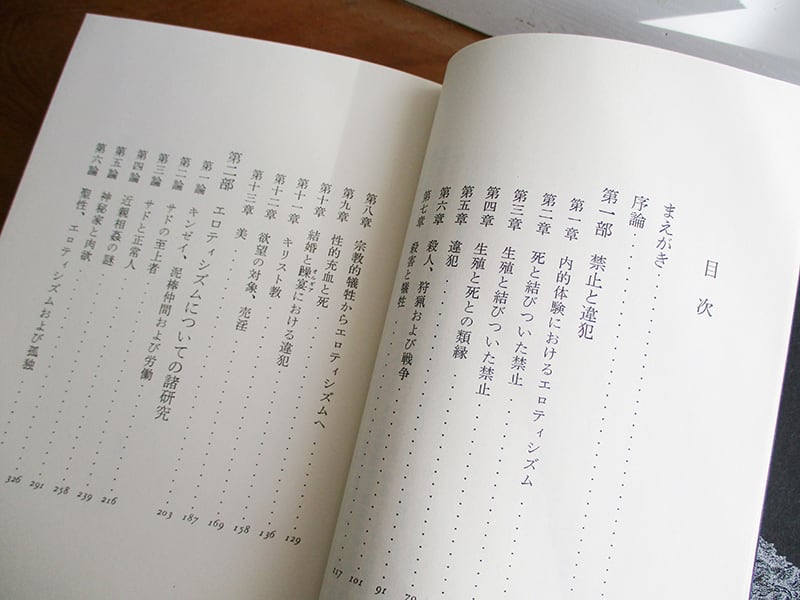 目次
まえがき
序論
第一部 禁止と違犯
第一章 内的体験におけるエロティシズム
第二章 死と結びついた禁止
第三章 生殖と結びついた禁止
第四章 生殖と死との類縁 79
第五章 違犯 91
第六章 殺人、狩猟および戦争 101
第七章 殺害と犠牲 117
第八章 宗教的犠牲からエロティシズムへ 129
第九章 性的充血と死 136
第十章 結婚と躁宴（オルギア） 158
第十一章 キリスト教 169
第十二章 欲望の対象、売淫 187
第十三章 美 203
第二部 エロティシズムについての諸研究
第一論 キンゼイ、泥棒仲間および労働 216
第二論 サドの至上者 239
第三論 サドと正常人 258
第四論 近親相姦の謎 291
第五論 神秘家と肉欲 326
第六論 聖性、エロティシズムおよび孤独